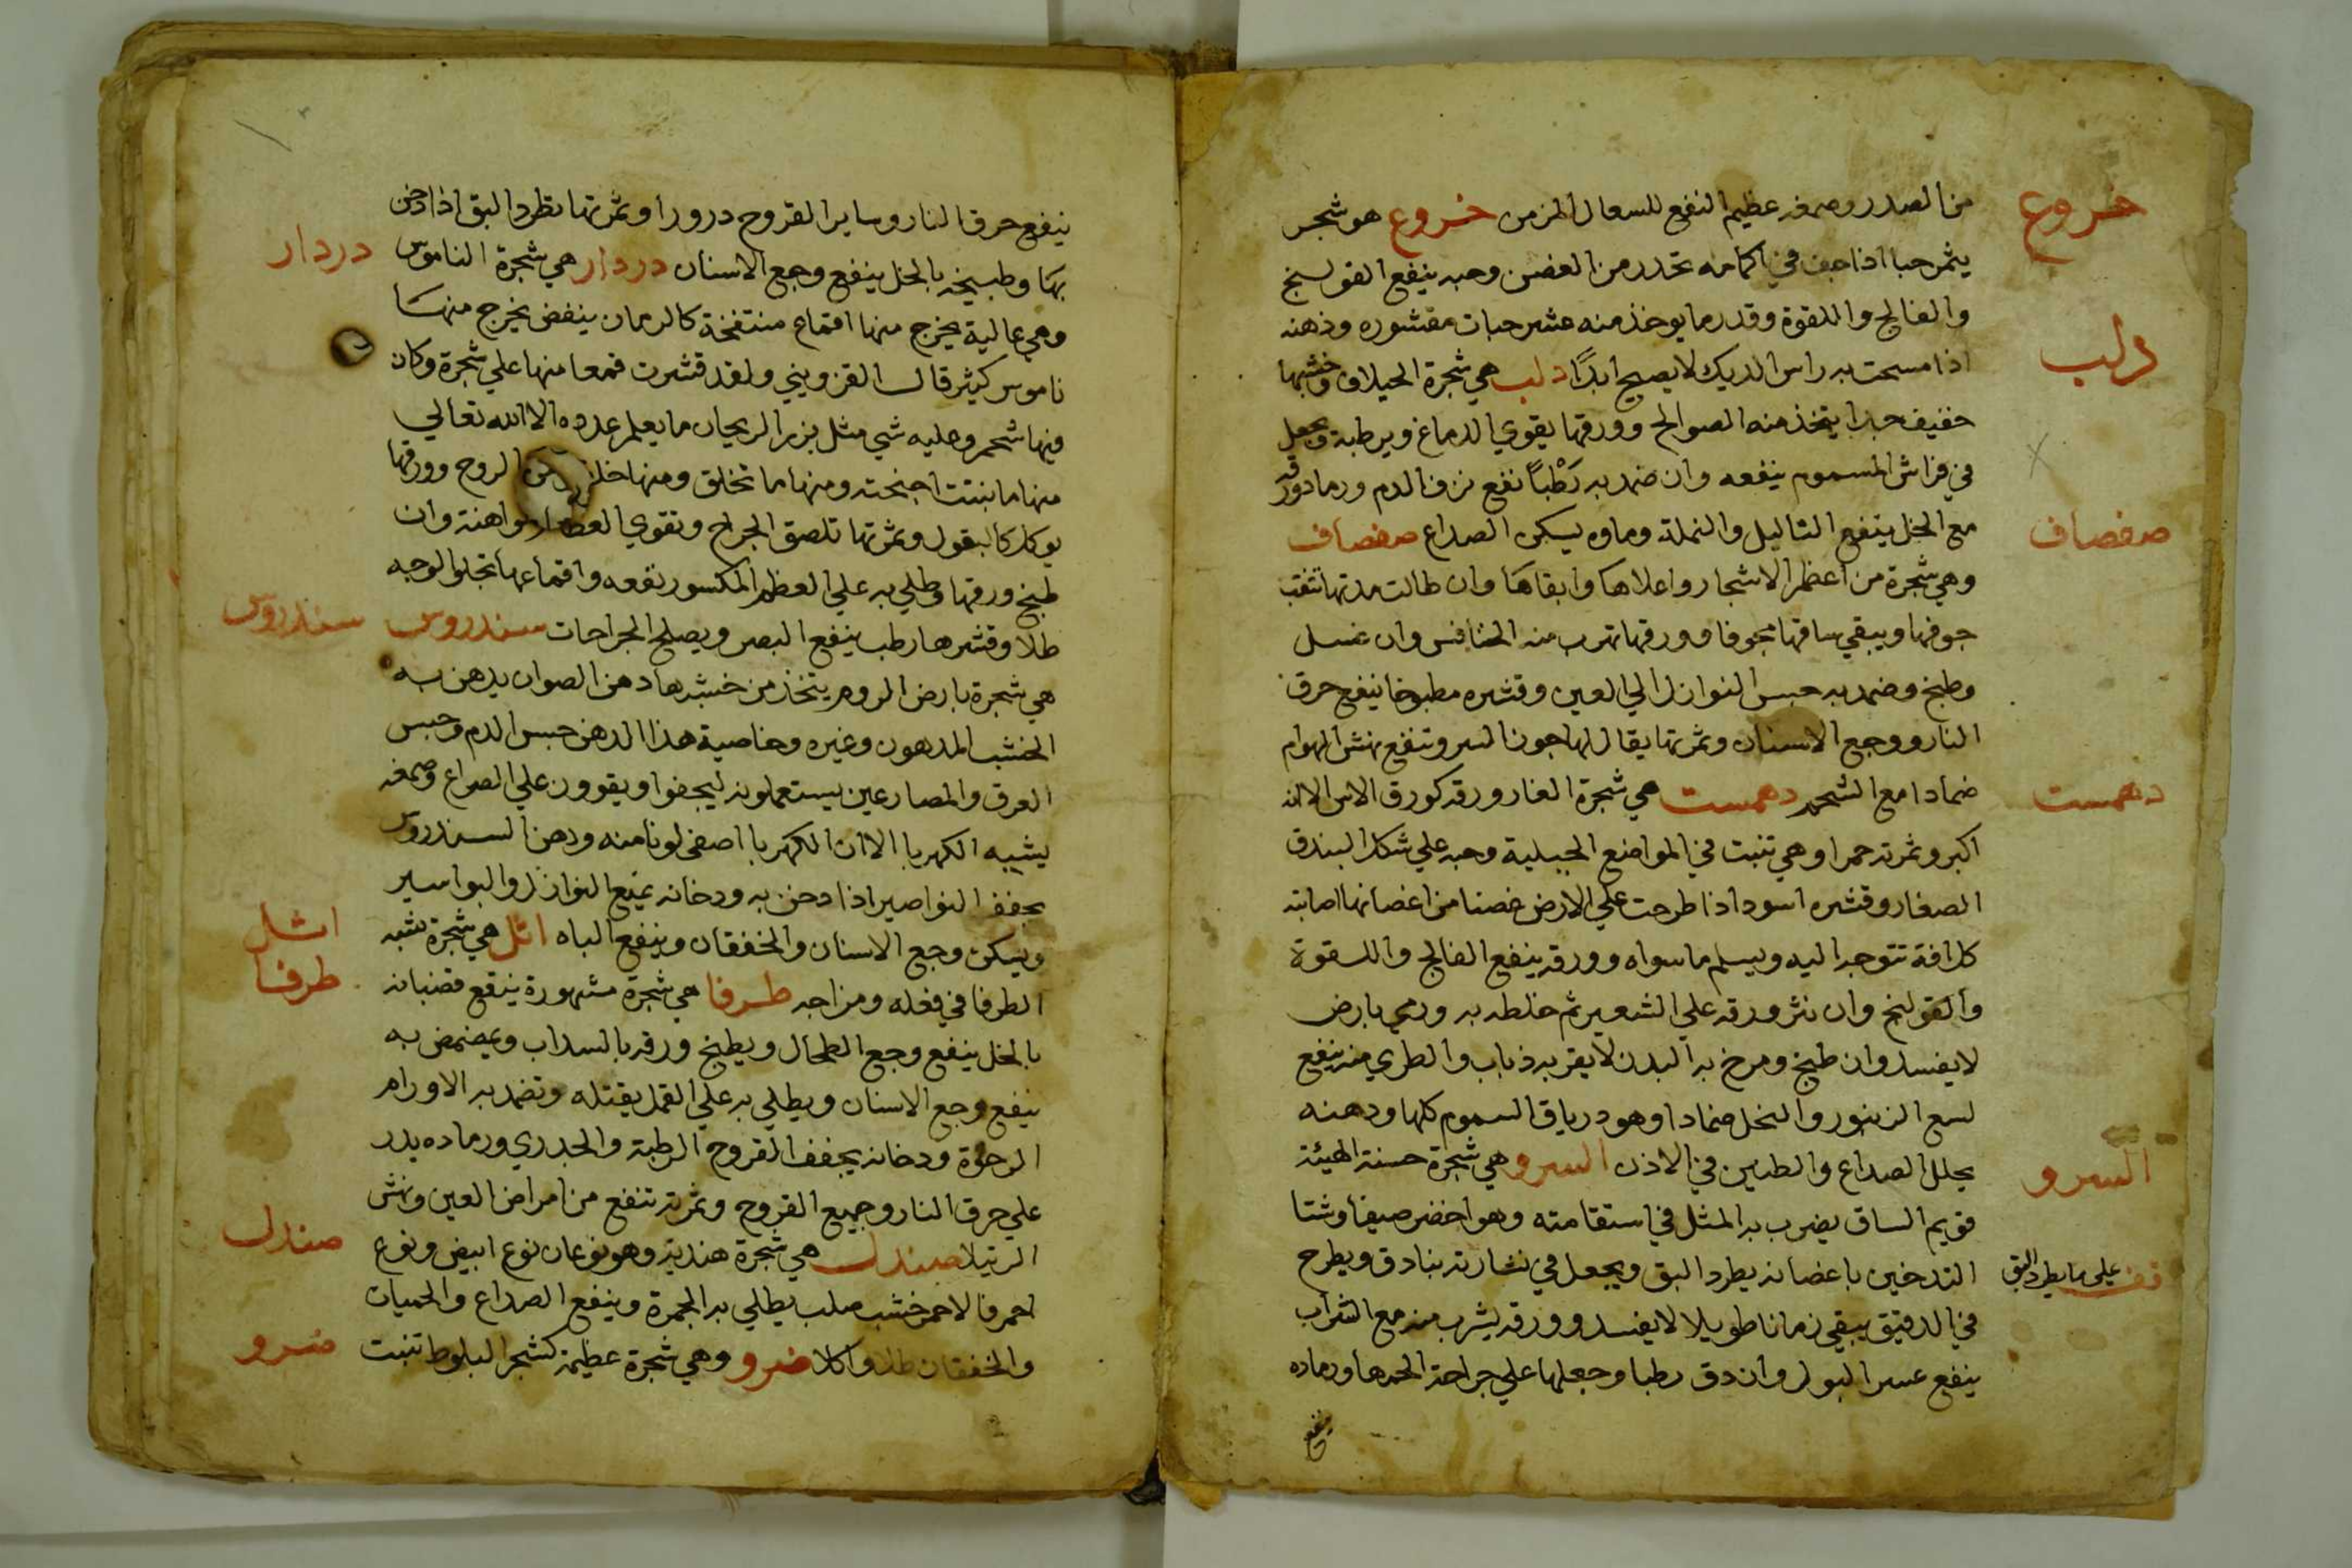 من الصدر وصمغه عظيم النفع للسعال المزمن خروع هو شجر
خروع
يثمر حبا اذا جف في اكمامه تحدر من الغصن وحبه ينفع القولنج
والفالج واللقوة وقدر ما يوخذ منه عشر حبات مقشوره ودهنه
اذا مسحت به راس الديك لا يصيح ابدًا دلب هي شجرة الجيلاف وخشبها
دلب
خفيف جدا يتخذ منه الصوالج وورقها يقوي الدماغ ويرطبه ويجعل
في فراش المسموم ينفعه وان ضمد به رَطْبًا نفع نزف الدم ورماد ورقه
مع الخل ينفع الثاليل والنملة وماوه يسكن الصداع صفصاف
صفصاف
وهي شجرة من اعظم الاشجار واعلاها وابقاها وان طالت مدتها تنقب
جوفها ويبقي ساقها مجوفا وورقها تهرب منه الخنافس وان غسل
وطبخ وضمد به حبس النوازل الي العين وقشره مطبوخا ينفع حرق
النار ووجع الاسنان وثمرتها يقال لها جوز السرو تنفع نهش الهوام
ضمادا مع الشحم دهمست هي شجرة الغار ورقه كورق الاس الا انه
دهمست
اكبر وثمرته حمرا وهي تنبت في المواضع الجبلية وحبه علي شكل البندق
الصغار وقشره اسود اذا طرحت علي الارض غصنا من اغصانها اصابته
كل افة تتوجه اليه ويسلم ما سواه وورقه ينفع الفالج واللقوة
والقولنج وان نثر ورقه علي الشعير ثم خلطه به ورمي بارض
لا يفسد وان طبخ ومرخ به البدن لا يقربه ذباب والطري منه ينفع
لسع الزنبور والنحل ضمادا وهو درياق السموم كلها ودهنه
يحلل الصداع والطنين في الاذن السرو هي شجرة حسنة الهيئة
السرو
قويم الساق يضرب به المثل في استقامته وهو اخضر صيفا وشتا
التدخين باغصانه يطرد البق ويجعل في نشارته بنادق ويطرح
قف علي ما يطرد البق
في الدقيق يبقي زمانا طويلا لا يفسد وورقه يشرب منه مع الشراب
ينفع عسر البول وان دق رطبا وجعلها علي جراحة الحمها ورماده
ينفع
ينفع حرق النار وساير القروح درورا وثمرتها تطرد البق اذا دخن
بها وطبيخه بالخل ينفع وجع الاسنان دردار هي شجرة الناموس
دردار
وهي عالية يخرج منها اقماع منتفخة كالرمان ينفض يخرج منها
ناموس كثير قال القزويني ولقد قشرت قمعا منها علي شجرة وكان
فيها شحم وعليه شي مثل بزر الريحان ما يعلم عدده الا الله تعالي
منها ما نبتت اجنحته ومنها ما تخلق ومنها خلا من الروح وورقها
يوكل كالبقول وثمرتها تلصق الجراح وتقوي العظام الواهنة وان
طبخ ورقها وطلي به علي العظم المكسور نفعه واقماعها تجلو الوجه
طلا وقشرها رطب ينفع البصر ويصلح الجراحات سندروس
سندروس
هي شجرة بارض الروم يتخذ من خشبها دهن الصوان يدهن به
الخشب المدهون وغيره وخاصية هذا الدهن حبس الدم وحبس
العرق والمصارعين يستعملونه ليجفوا ويقوون علي الصراع وصمغه
يشبه الكهربا الا ان الكهربا اصفي لونا منه ودهن السندروس
يجفف النواصير اذا دخن به ودخانه يمنع النوازل والبواسير
ويسكن وجع الاسنان والخفقان وينفع الباه اثل هي شجرة تشبه
اثل
الطرفا في فعله ومزاجه طرفا هي شجرة مشهورة ينقع قضبانه
طرفا
بالخل ينفع وجع الطحال ويطبخ ورقه بالسداب ويمضمض به
ينفع وجع الاسنان ويطلي به علي القمل يقتله وتضمد به الاورام
الرخوة ودخانه يجفف القروح الرطبة والجدري ورماده يدر
علي حرق النار وجميع القروح وثمرته تنفع من امراض العين ونهش
الرتيلا صندل هي شجرة هندية وهو نوعان نوع ابيض ونوع
صندل
احمر فالاحمر خشب صلب يطلي به الجمرة وينفع الصداع والحميات
والخفقان طلا واكلا ضرو وهي شجرة عظيمة كشجر البلوط تنبت
ضرو